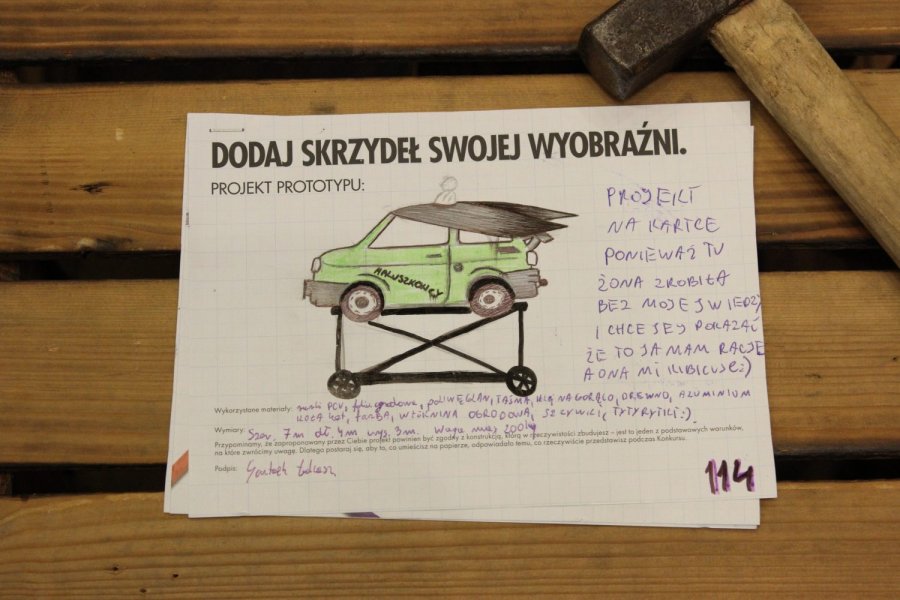 DODAJ SKRZYDEŁ SWOJEJ WYOBRAŹNI.
PROJEKT PROTOTYPU:
PROJEKT
NA KARTCE
PONIEWAŻ TU
ŻONA ZROBIŁA
BEZ MOJEJ WIEDZY
I CHCE JEJ POKAZAĆ
ŻE TO JA MAM RACJE
A ONA MI KIBICUJE:)
MALUSZKOWCY
Wykorzystane materiały: PCV, POLIWĘGLAN, TAŚMA, KLEJ NA GORĄCO, DREWNO, ALUMINIUM
KOŁA, FARBA, WŁÓKNINA OGRODOWA, SZCZYWKI, TYTYRYTKI:)
Wymiary: Szer. 7m dł. 4m wys. 3m. Waga 200kg
Przypominamy, że zaproponowany przez Ciebie projekt powinien być zgodny z konstrukcją, którą w rzeczywistości zbudujesz – jest to jeden z podstawowych warunków,
na które zwrócimy uwagę. Dlatego postaraj się, aby to, co umieścisz na papierze, odpowiadało temu, co rzeczywiście przedstawisz podczas Konkursu.
Podpis:
114